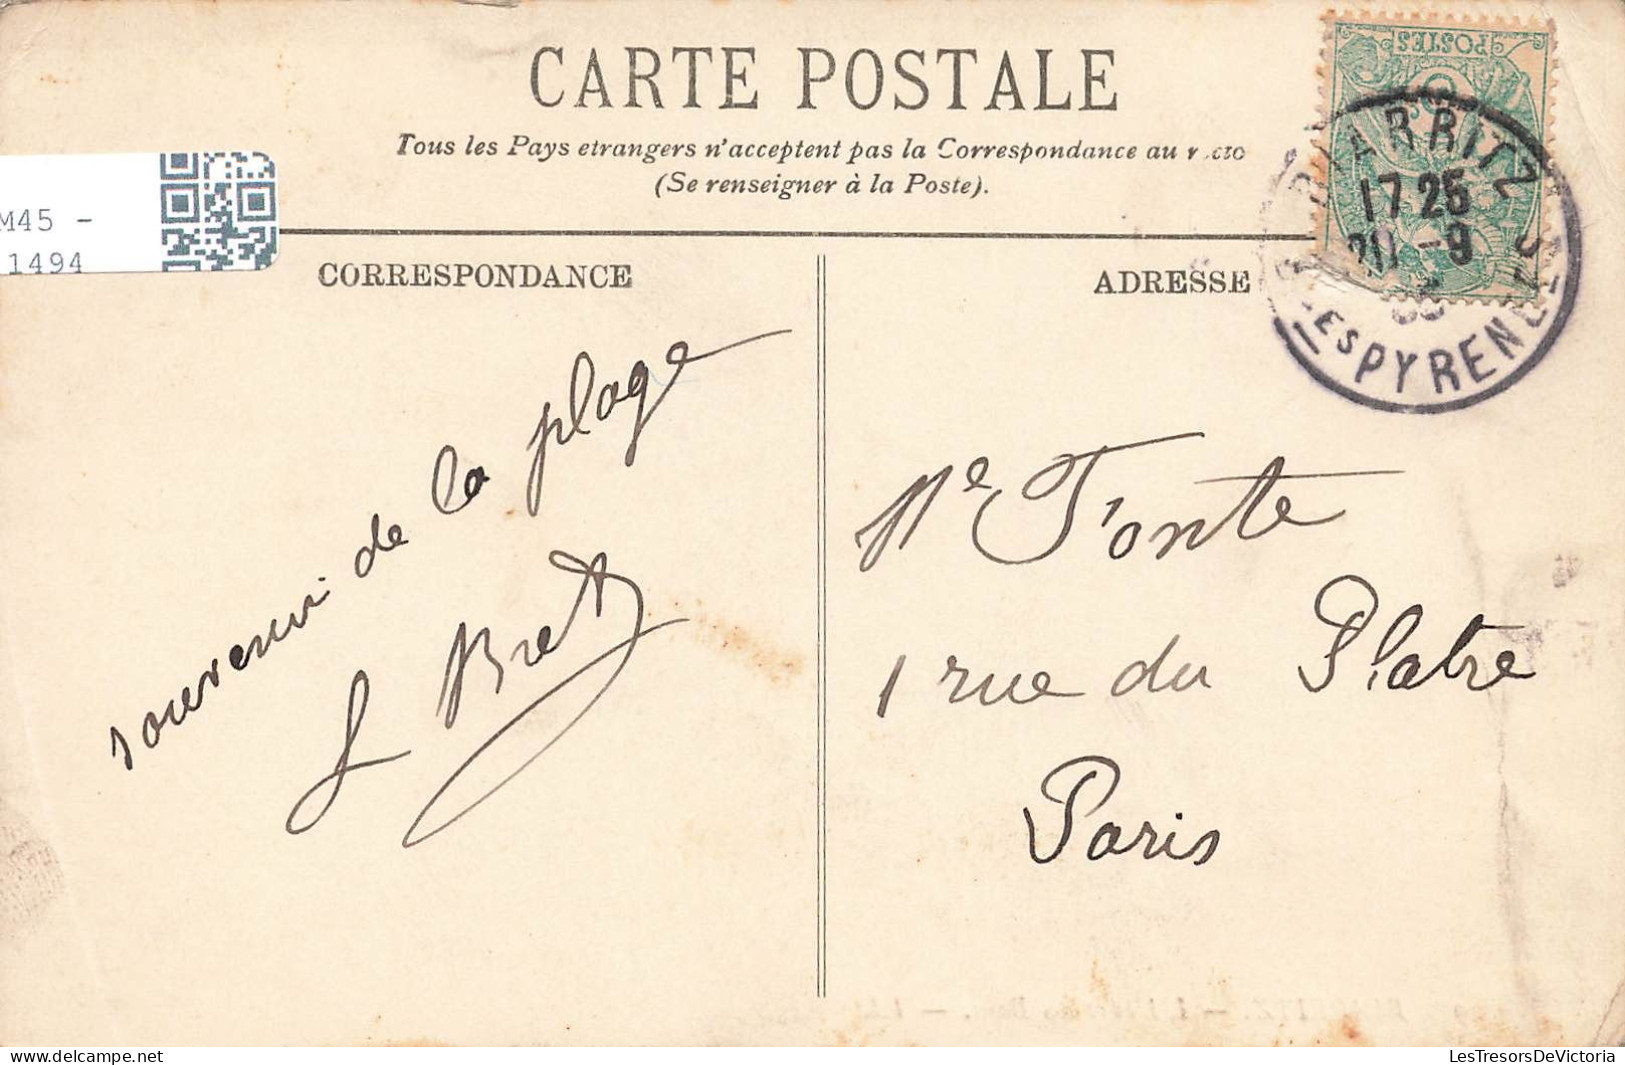 CARTE POSTALE
Tous les Pays etrangers n'acceptent pas la Correspondance au
(Se renseigner à la Poste).
M45 -
1494
CORRESPONDANCE
ADRESSE
POSTES
BIARRITZ
17 25
20 -9
PYRENEES
souvenir de la plage
Bret
Me Fonte
1 rue du Platre
Paris
LesTresorsDeVictoria.com
delcampe.net